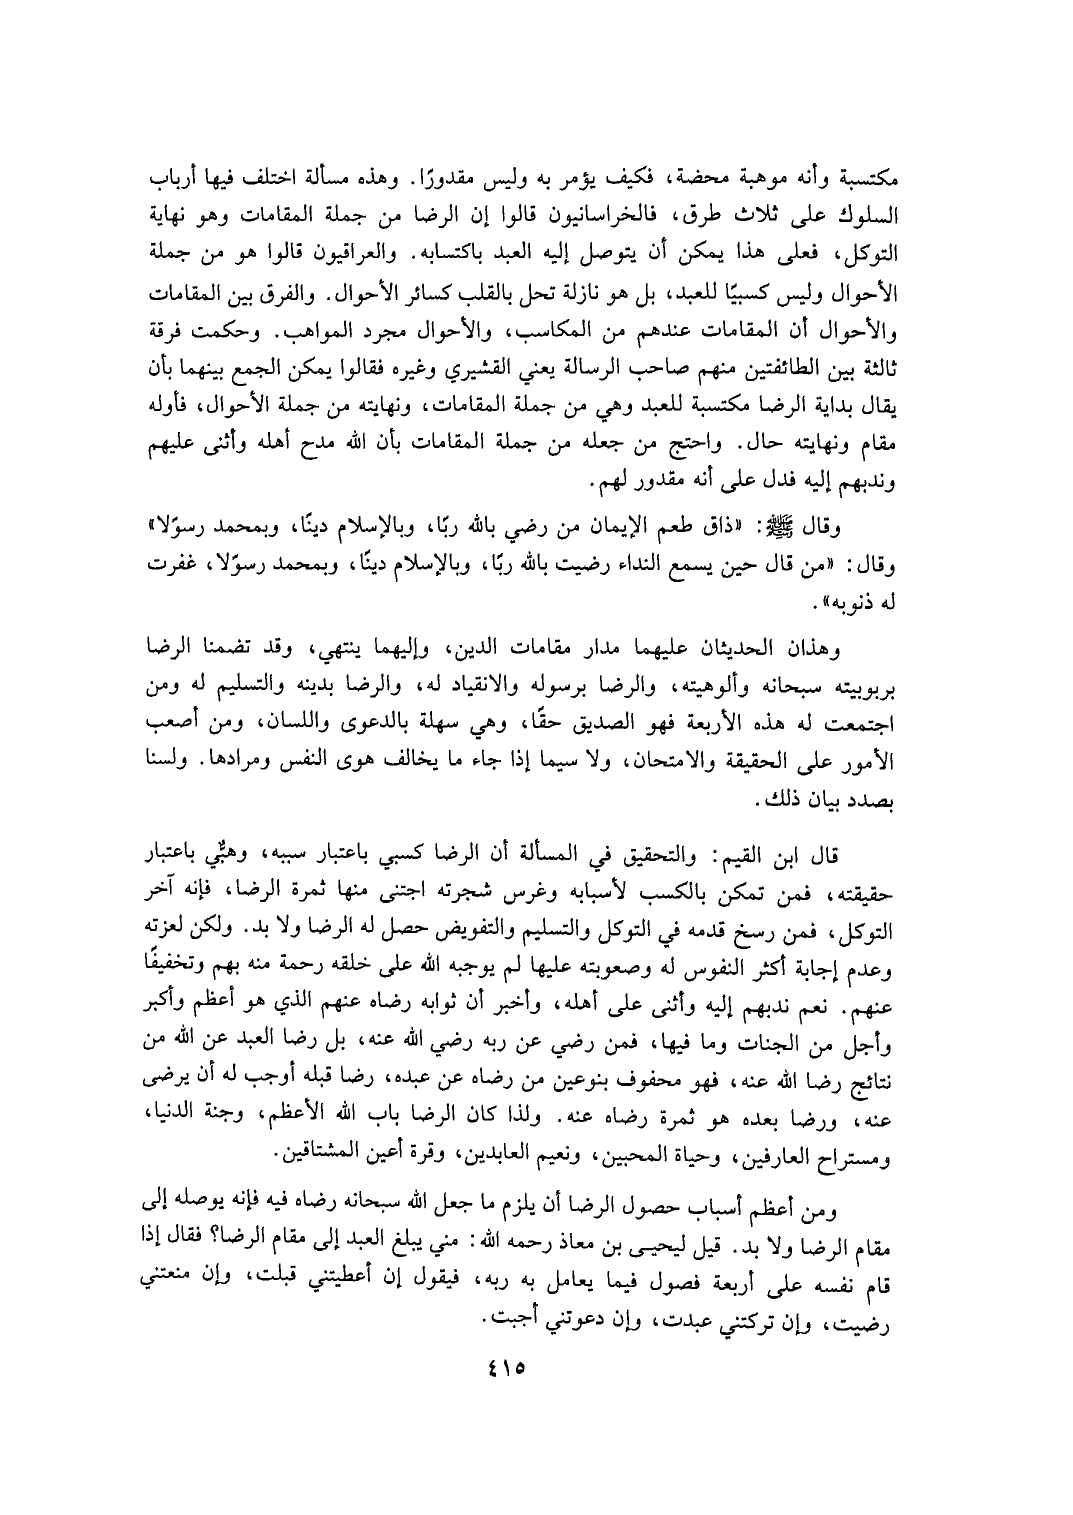 مكتسبة وأنه موهبة محضة، فكيف يؤمر به وليس مقدورًا. وهذه مسألة اختلف فيها أرباب
السلوك على ثلاث طرق، فالخراسانيون قالوا إن الرضا من جملة المقامات وهو نهاية
التوكل، فعلى هذا يمكن أن يتوصل إليه العبد باكتسابه. والعراقيون قالوا هو من جملة
الأحوال وليس كسبيًا للعبد، بل هو نازلة تحل بالقلب كسائر الأحوال. والفرق بين المقامات
والأحوال أن المقامات عندهم من المكاسب، والأحوال مجرد المواهب. وحكمت فرقة
ثالثة بين الطائفتين منهم صاحب الرسالة يعني القشيري وغيره فقالوا يمكن الجمع بينهما بأن
يقال بداية الرضا مكتسبة للعبد وهي من جملة المقامات، ونهايته من جملة الأحوال، فأوله
مقام ونهايته حال. واحتج من جعله من جملة المقامات بأن الله مدح أهله وأثنى عليهم
وندبهم إليه فدل على أنه مقدور لهم.
وقال ﷺ: «ذاق طعم الإيمان من رضي بالله ربًا، وبالإسلام دينًا، وبمحمد رسوًلا»
وقال: «من قال حين يسمع النداء رضيت بالله ربًا، وبالإسلام دينًا، وبمحمد رسوًلا، غفرت
له ذنوبه».
وهذان الحديثان عليهما مدار مقامات الدين، وإليهما ينتهي، وقد تضمنا الرضا
بربوبيته سبحانه وألوهيته، والرضا برسوله والانقياد له، والرضا بدينه والتسليم له ومن
اجتمعت له هذه الأربعة فهو الصديق حقًا، وهي سهلة بالدعوى واللسان، ومن أصعب
الأمور على الحقيقة والامتحان، ولا سيما إذا جاء ما يخالف هوى النفس ومرادها. ولسنا
بصدد بيان ذلك.
قال ابن القيم: والتحقيق في المسألة أن الرضا كسبي باعتبار سببه، وهبٌّي باعتبار
حقيقته، فمن تمكن بالكسب لأسبابه وغرس شجرته اجتنى منها ثمرة الرضا، فإنه آخر
التوكل، فمن رسخ قدمه في التوكل والتسليم والتفويض حصل له الرضا ولا بد. ولكن لعزته
وعدم إجابة أكثر النفوس له وصعوبته عليها لم يوجبه الله على خلقه رحمة منه بهم وتخفيفًا
عنهم. نعم ندبهم إليه وأثنى على أهله، وأخبر أن ثوابه رضاه عنهم الذي هو أعظم وأكبر
وأجل من الجنات وما فيها، فمن رضي عن ربه رضي الله عنه، بل رضا العبد عن الله من
نتائج رضا الله عنه، فهو محفوف بنوعين من رضاه عن عبده، رضا قبله أوجب له أن يرضى
عنه، ورضا بعده هو ثمرة رضاه عنه. ولذا كان الرضا باب الله الأعظم، وجنة الدنيا،
ومستراح العارفين، وحياة المحبين، ونعيم العابدين، وقرة أعين المشتاقين.
ومن أعظم أسباب حصول الرضا أن يلزم ما جعل الله سبحانه رضاه فيه فإنه يوصله إلى
مقام الرضا ولا بد. قيل ليحيى بن معاذ رحمه الله: مني يبلغ العبد إلى مقام الرضا؟ فقال إذا
قام نفسه على أربعة فصول فيما يعامل به ربه، فيقول إن أعطيتني قبلت، وإن منعتني
رضيت، وإن تركتني عبدت، وإن دعوتني أجبت.
٤١٥